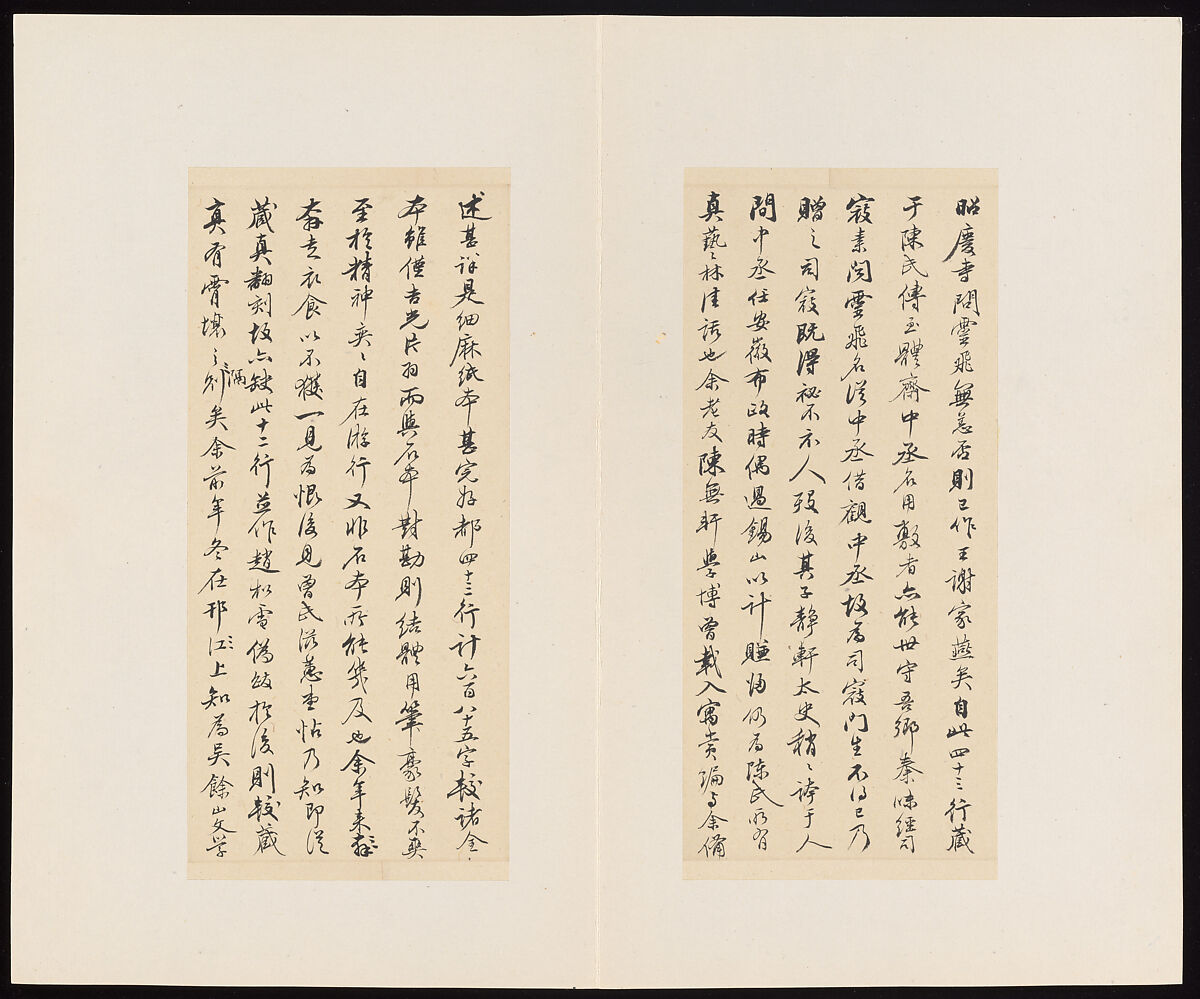 昭慶寺問雲飛無恙否則已作王謝家燕矣自此四十三行藏
于陳氏傳玉體齋中丞名用敷者亦能世守吾鄉秦味經司
寇素閱靈飛名從中丞借觀中丞故為司寇門生不得已乃
贈之司寇既得祕不示人歿後其子靜軒太史稍〻誇于人
間中丞任安徽布政時偶過錫山以計賺歸仍為陳氏所有
真藝〻林佳話也余老友陳無軒學博曾載入寓賞編與余備
述甚詳是細麻紙本甚完好都四十三行計六百八十五字較諸全〻
本雖僅吉光片羽而與石本對勘則結體用筆豪髮不爽
至於精神奕〻自在游行又非石本所能幾及也余年來奔〻
奔走衣食以不獲一見為恨後見曾氏滋蕙堂帖乃知即從
藏真翻刻故亦缺此十二行並作趙松雪偽跋於後則較藏
真有霄壤之〻隔別矣余前年冬在邗江〻上知為吳餘山文學